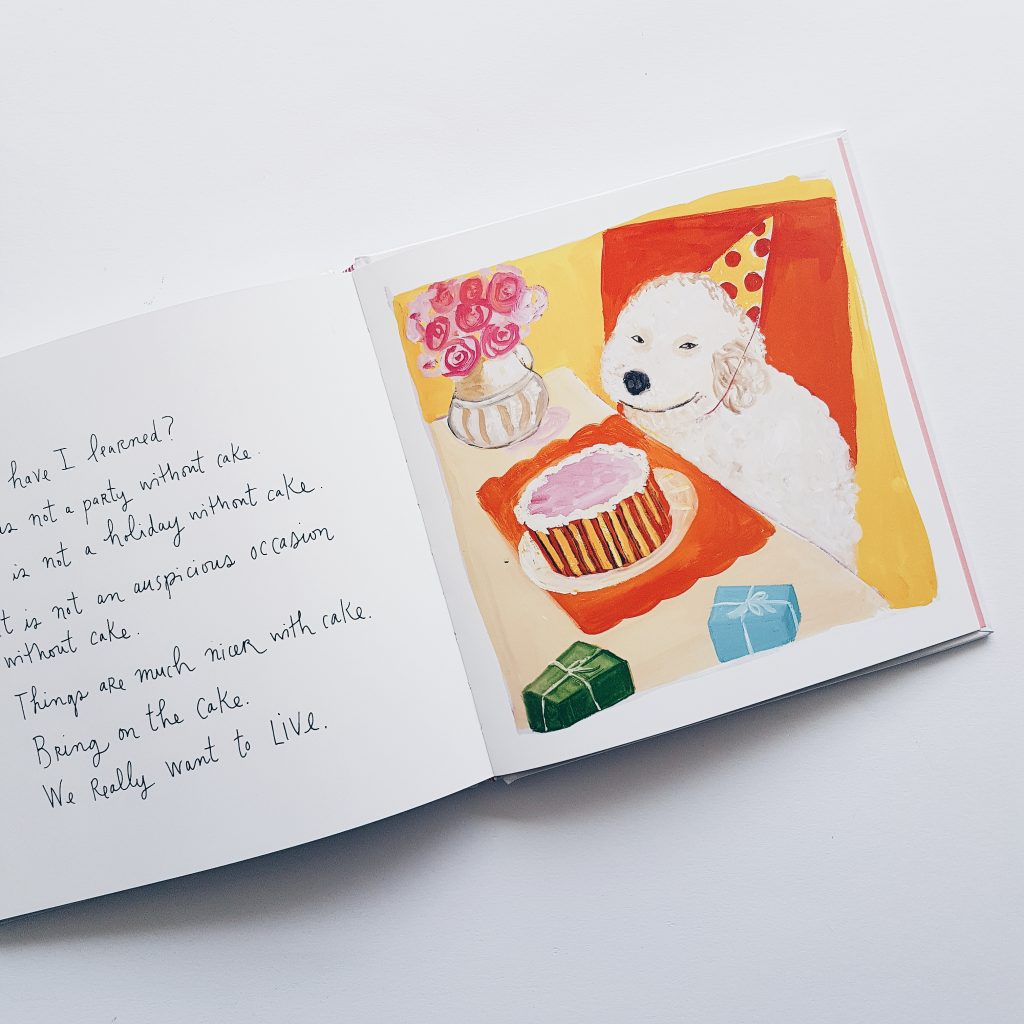 have I learned?
is not a party without cake.
is not a holiday without cake.
It is not an auspicious occasion
without cake.
Things are much nicer with cake.
Bring on the cake.
We Really want to Live.